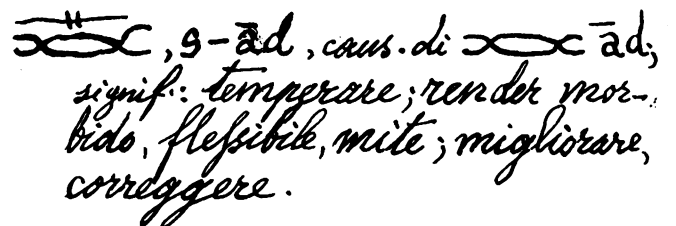 , s-ād, caus. di ād;
signif.: temperare; render mor-
bido, flessibile, mite; migliorare,
correggere.